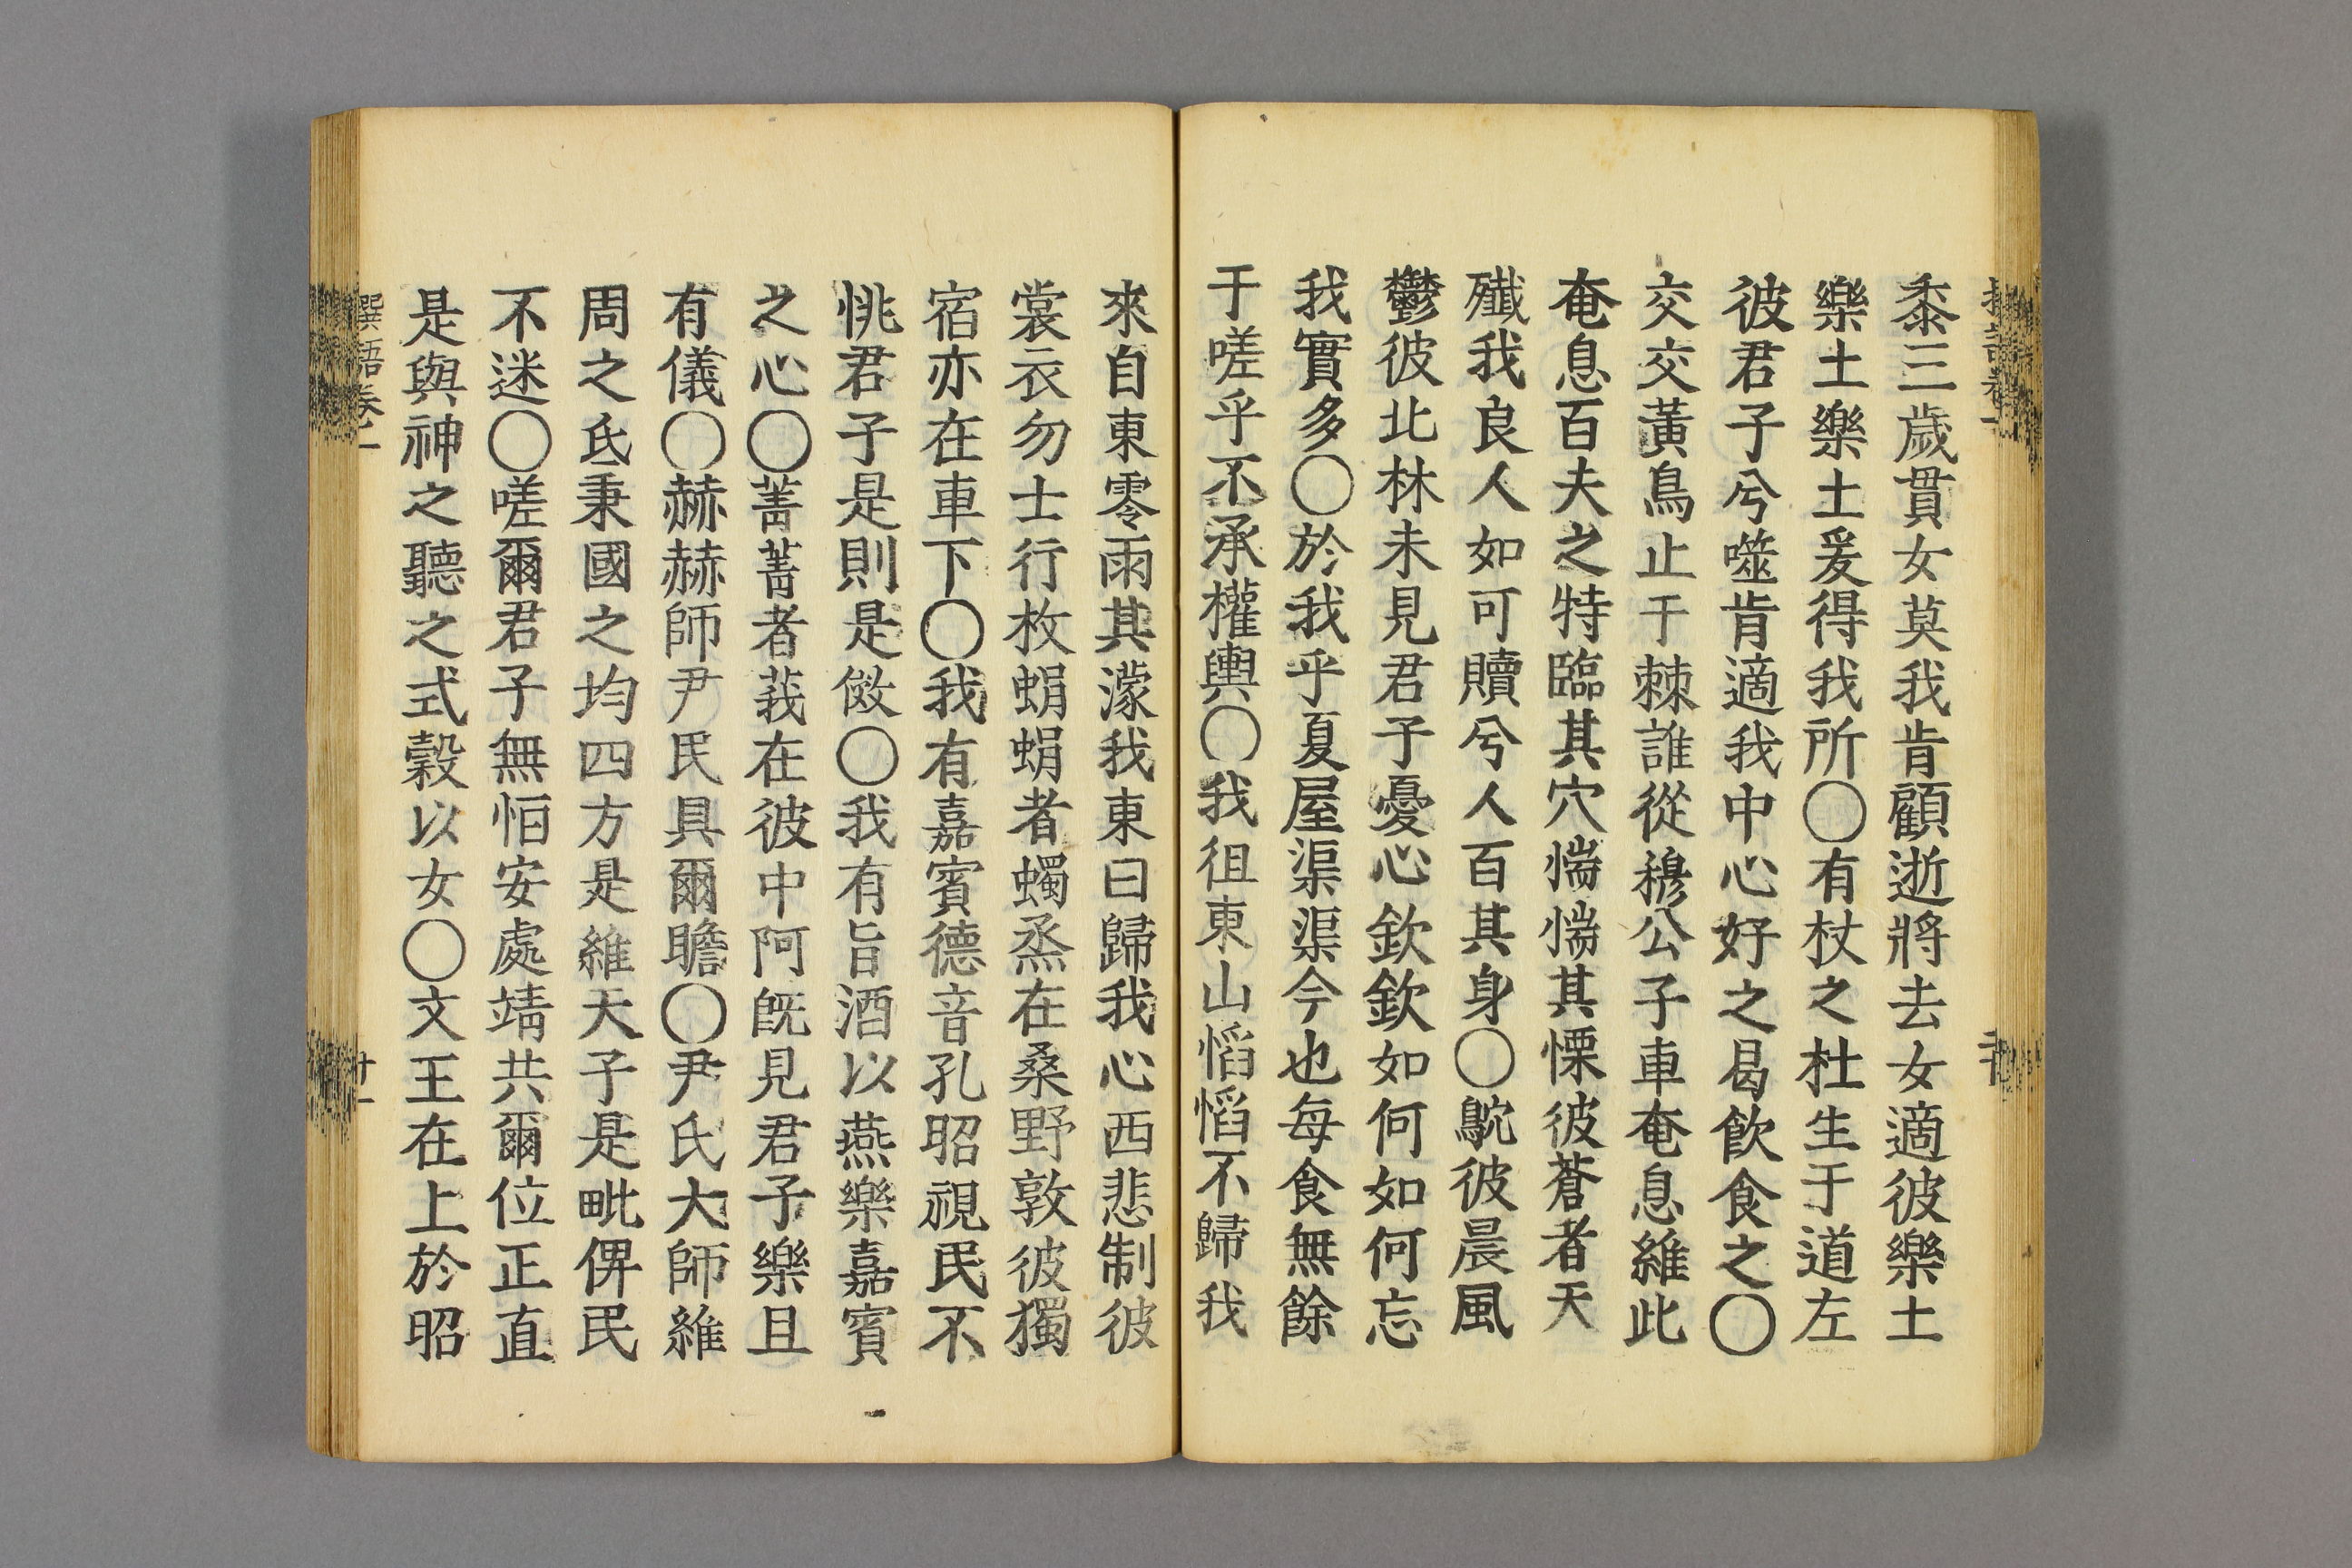 黍三歲貫女莫我肯顧逝將去女適彼樂土
樂土樂土爰得我所〇有杕之杜生于道左
彼君子兮噬肯適我中心好之曷飲食之〇
交交黃鳥止于棘誰從穆公子車奄息維此
奄息百夫之特臨其穴惴惴其慄彼蒼者天
殲我良人如可贖兮人百其身〇鴥彼晨風
鬱彼北林未見君子憂心欽欽如何如何忘
我實多〇於我乎夏屋渠渠今也每食無餘
于嗟乎不承權輿〇我徂東山慆慆不歸我
來自東零雨其濛我東曰歸我心西悲制彼
裳衣勿士行枚蜎蜎者蠋烝在桑野敦彼獨
宿亦在車下〇我有嘉賓德音孔昭視民不
恌君子是則是傚〇我有旨酒以燕樂嘉賓
之心〇菁菁者莪在彼中阿旣見君子樂且
有儀〇赫赫師尹民具爾瞻〇尹氏大師維
周之氐秉國之均四方是維天子是毗俾民
不迷〇嗟爾君子無恒安處靖共爾位正直
是與神之聽之式穀以女〇文王在上於昭
語卷一
廿一